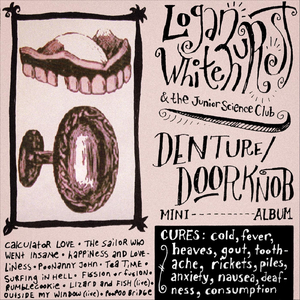 Logan
Whitehurst
& the Junior Science Club
DENTURE/
DOORKNOB
MINI ALBUM
CURES: cold, fever,
heaves, gout, tooth-
ache, rickets, piles,
anxiety, nausea, deaf-
ness, consumption
CALCULATOR LOVE • THE SAILOR WHO
WENT INSANE • HAPPINESS AND LOVE-
LINESS • POONANNY JOHN • TEA TIME •
SURFING IN HELL • FISSION OR FUSION •
BUMBLECOOKIE • LIZARD AND FISH (live) •
OUTSIDE MY WINDOW (live) • POOPOO BRIDGE